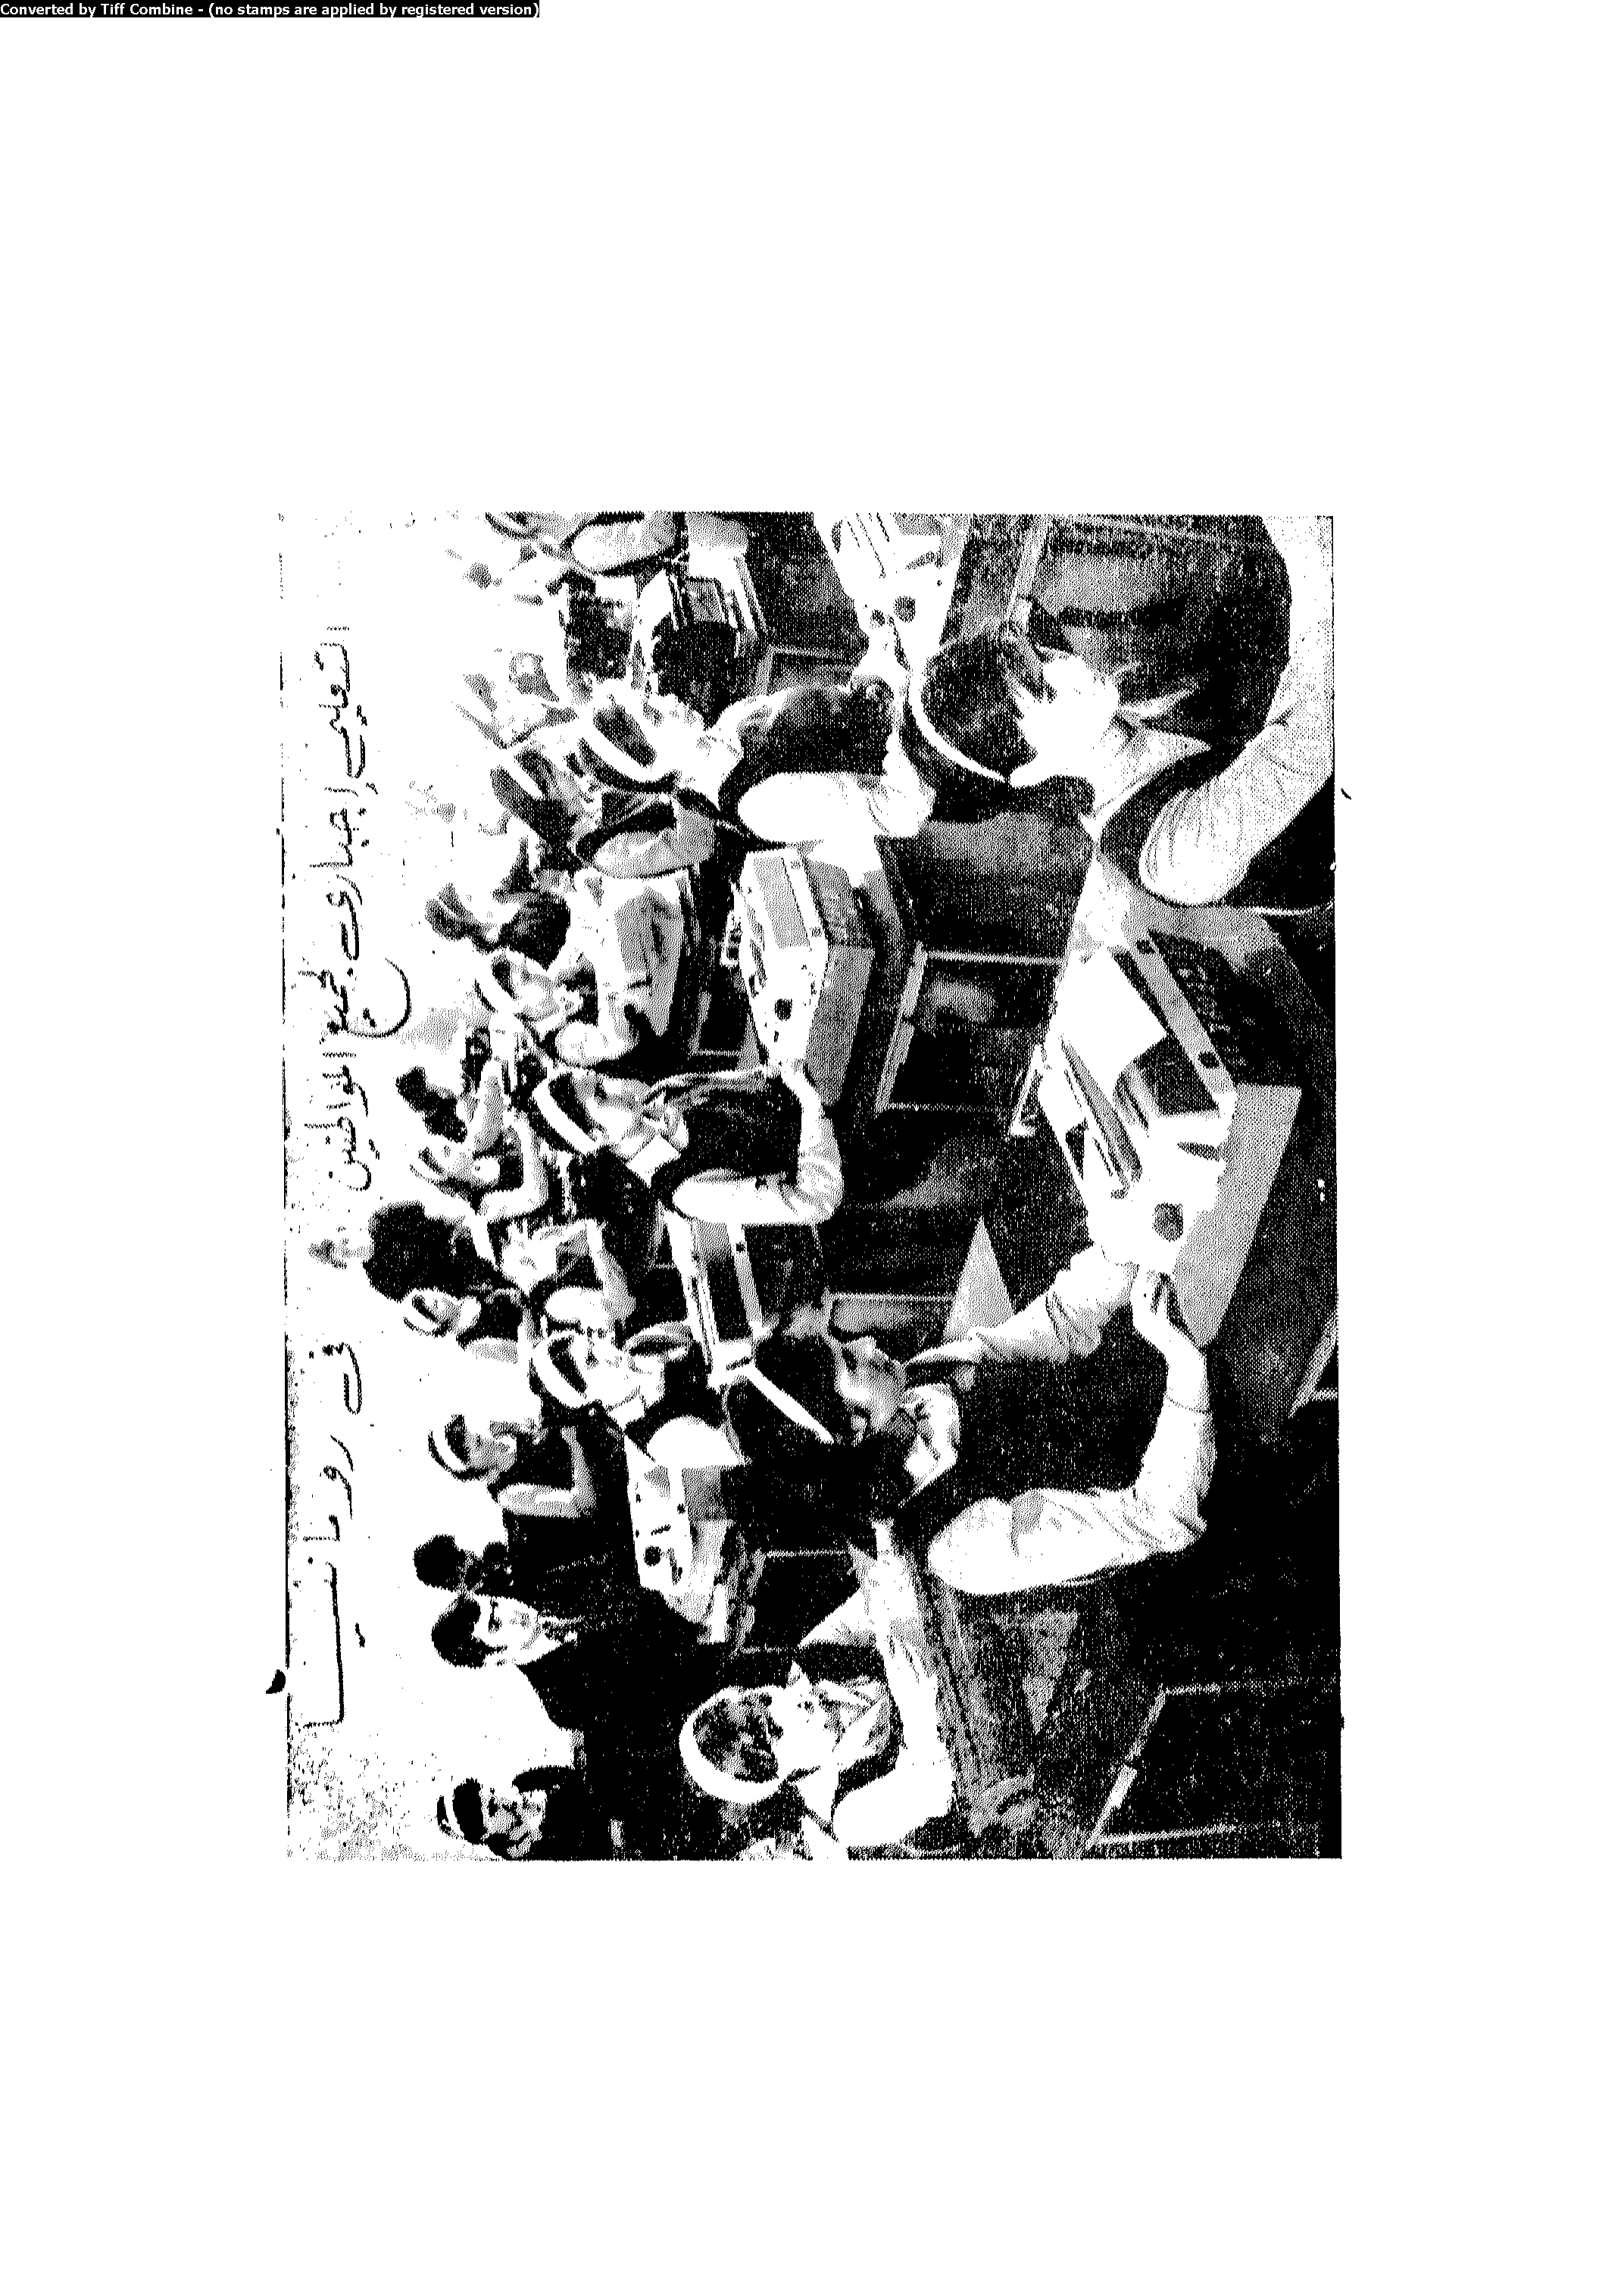 Converted by Tiff Combine - (no stamps are applied by registered version)
التعليم إجباري لجميع المواطنين في رومانيا